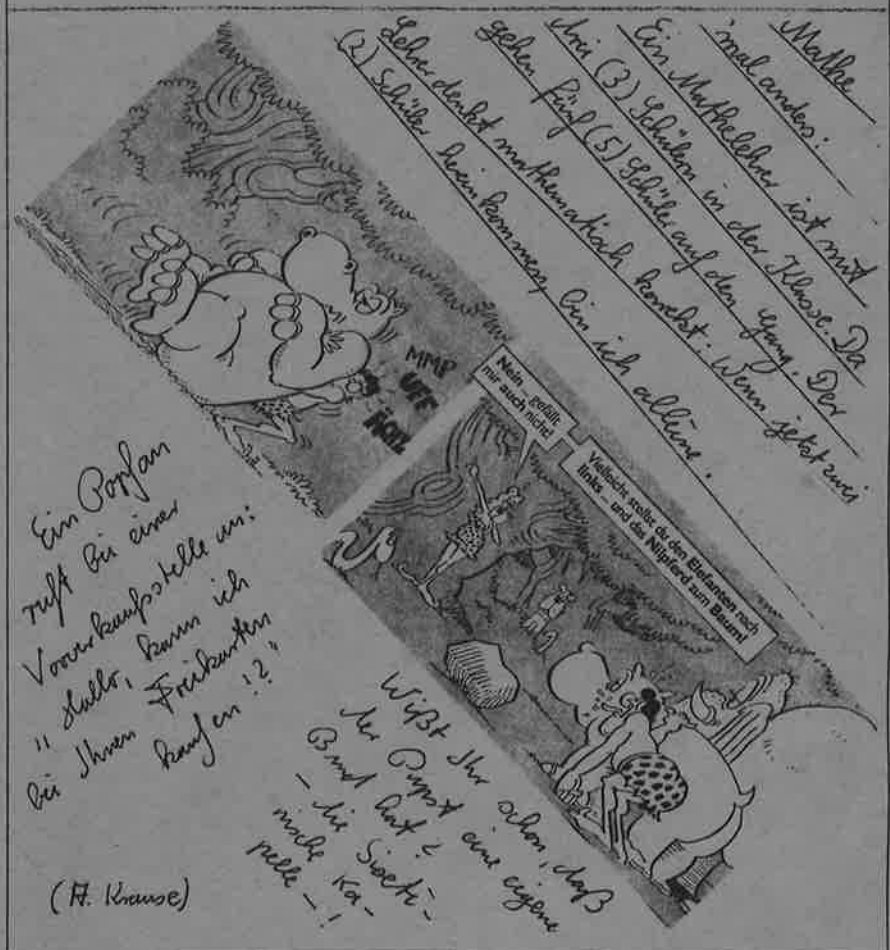 Mathe
'mal anders:
Ein Mathelehrer ist mit
drei (3) Schülern in der Klasse. Da
gehen fünf (5) Schüler auf den Gang. Der
Lehrer denkt mathematisch korrekt: Wenn jetzt zwei
(2) Schüler hereinkommen, bin ich alleine.
MMP
UFF
Nein ... gefällt
mir auch nicht!
Vielleicht stellst du den Elefanten nach
links – und das Nilpferd zum Baum!
Ein Popfan
ruft bei einer
Vorverkaufsstelle an:
"Hallo, kann ich
bei Ihnen Freikarten
kaufen!?"
Wißt Ihr schon, daß
der Papst eine eigene
Band hat?
- die Sixti-
nische Ka-
pelle -!
(A. Krause)